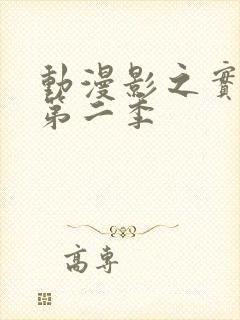 動漫影之實
第二季
高專